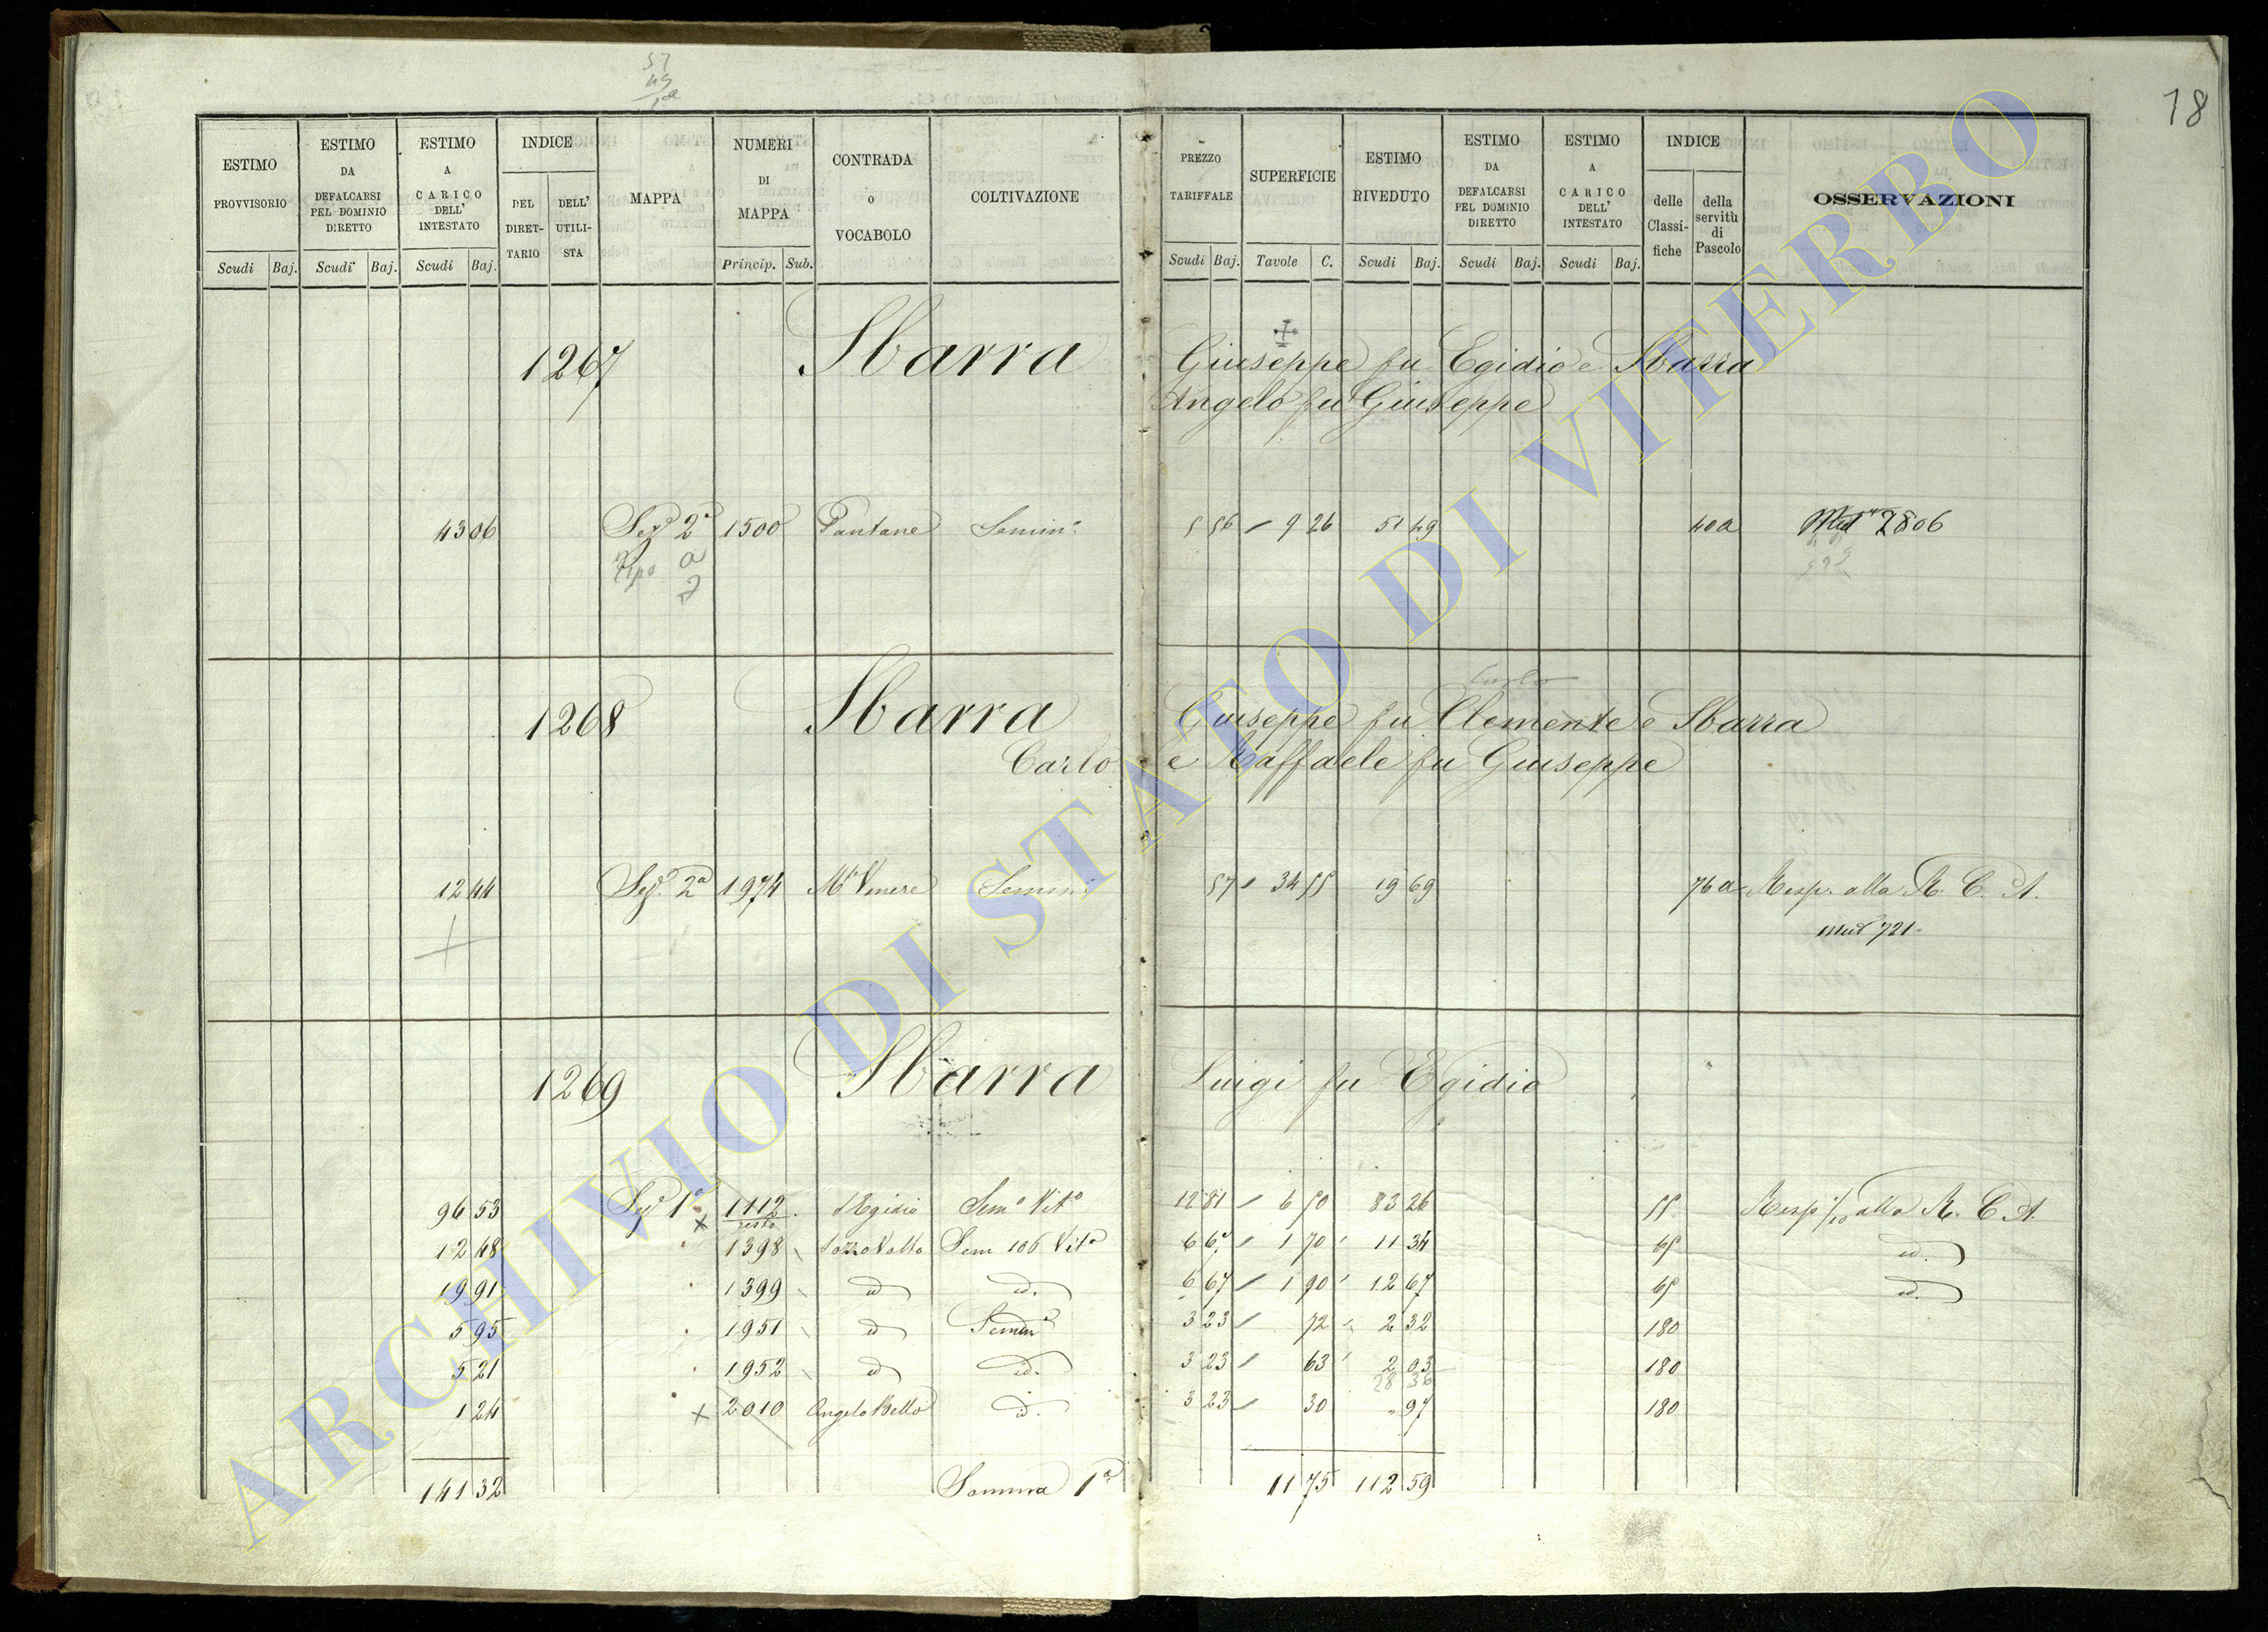 18
ESTIMO PROVVISORIO
ESTIMO DA DEFALCARSI PEL DOMINIO DIRETTO
ESTIMO A CARICO DELL' INTESTATO
INDICE
DEL DIRET-TARIO
DELL' UTILI-STA
MAPPA
NUMERI DI MAPPA
CONTRADA o VOCABOLO
COLTIVAZIONE
PREZZO TARIFFALE
SUPERFICIE
ESTIMO RIVEDUTO
ESTIMO DA DEFALCARSI PEL DOMINIO DIRETTO
ESTIMO A CARICO DELL' INTESTATO
INDICE
delle Classi-fiche
della servitù di Pascolo
OSSERVAZIONI
Scudi Baj. Scudi Baj. Scudi Baj. Princip. Sub. Scudi Baj. Tavole C. Scudi Baj. Scudi Baj. Scudi Baj.
1267 Sbarra Giuseppe fu Egidio e Sbarra
Angelo fu Giuseppe
43 06 Sezᵉ 2ª 1500 Pantane Semin.º 5 56 9 26 51 49 40 a 2806
1268 Sbarra Giuseppe fu Clemente e Sbarra
Carlo
Carlo e Raffaele fu Giuseppe
12 44 Sezᵉ 2ª 1974 Mᵗᵉ Venere Semin.º 57 34 55 19 69 76 a Resp. alla R. C. A.
721
1269 Sbarra Luigi fu Egidio
96 53 Sezᵉ 1ª 1112 S Egidio Semº Vitº 12 81 6 50 83 26 55 Resp 1/10 alla R. C. A.
resto
12 48 1398 Pozzo Volto Sem Vitº 6 67 1 70 11 34 65 id.
19 91 1399 id id. 6 67 1 90 12 67 65 id.
5 95 1951 id Semin.º 3 23 72 2 32 180
5 21 1952 id id. 3 23 63 2 03 180
28 36
1 24 2010 Angelo Bello id. 3 23 30 97 180
141 32 Somma 1ª 11 75 112 59
ARCHIVIO DI STATO DI VITERBO